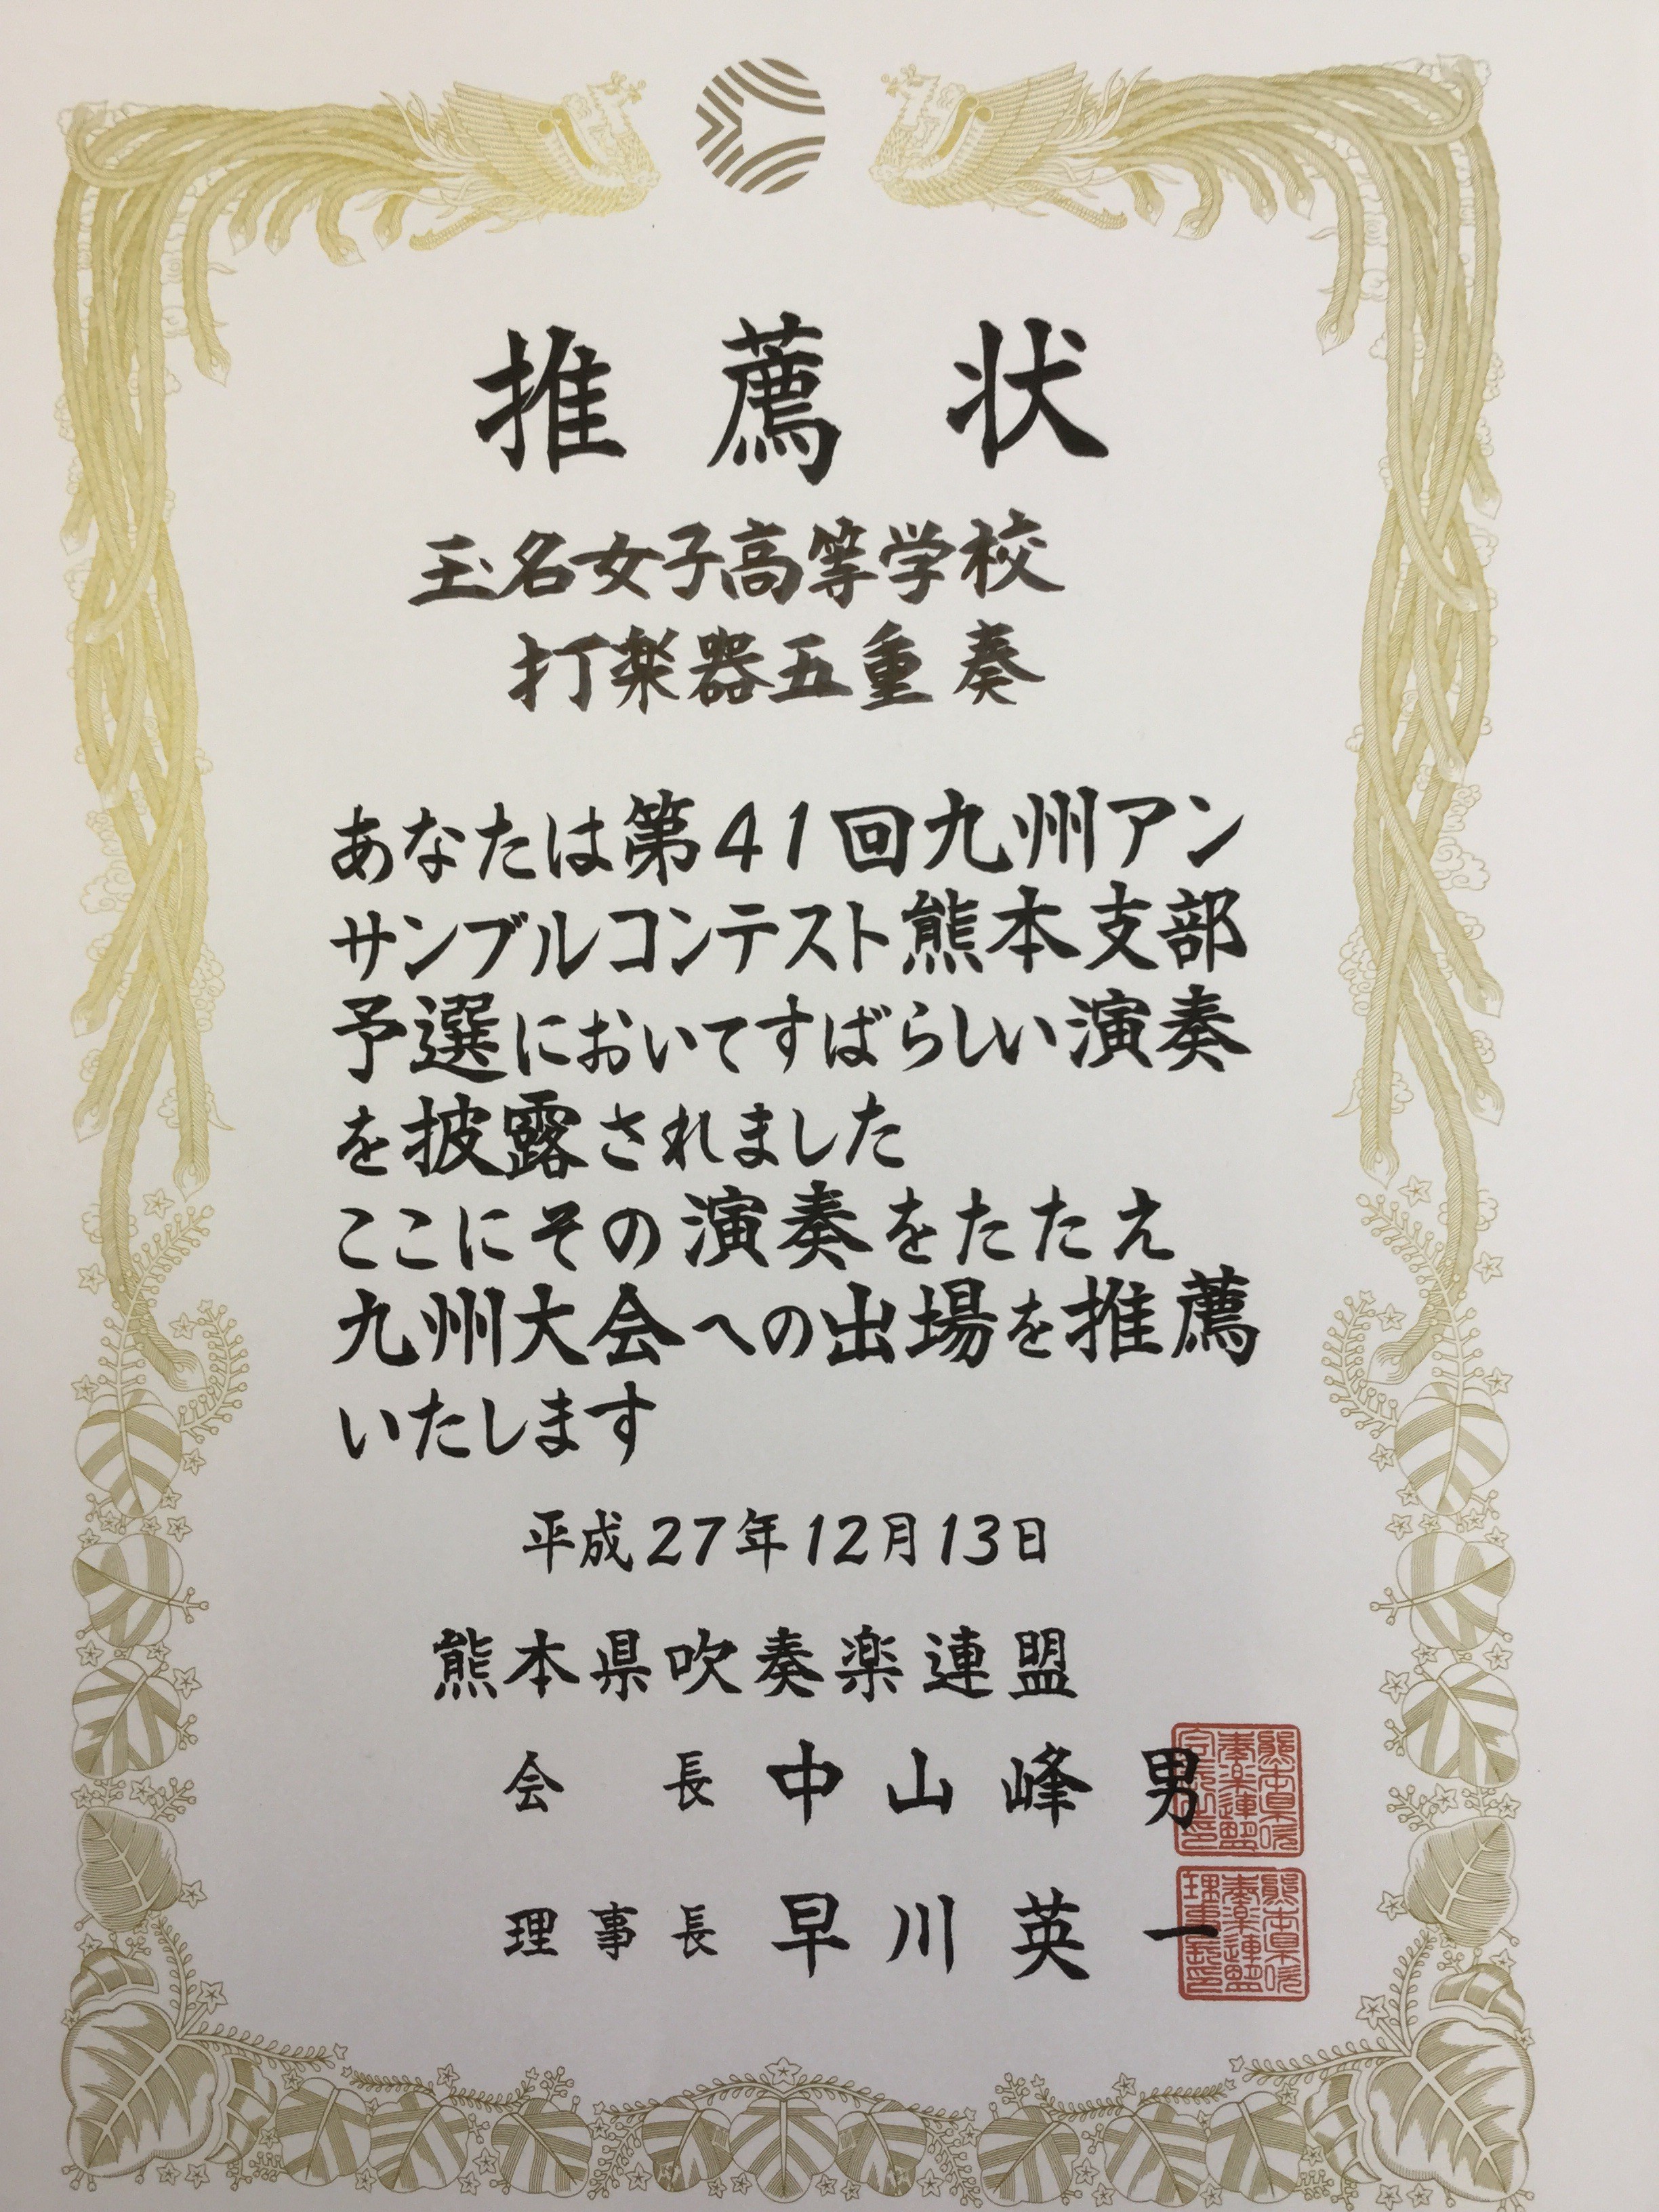 推薦状
玉名女子高等学校
打楽器五重奏
あなたは第41回九州アン
サンブルコンテスト熊本支部
予選においてすばらしい演奏
を披露されました
ここにその演奏をたたえ
九州大会への出場を推薦
いたします
平成27年12月13日
熊本県吹奏楽連盟
会長 中山峰男
理事長 早川英一